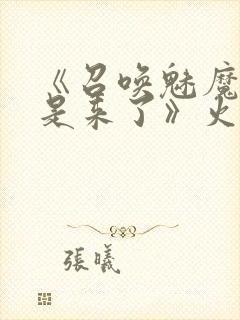 《召唤魅魔
是来了》火
張曦